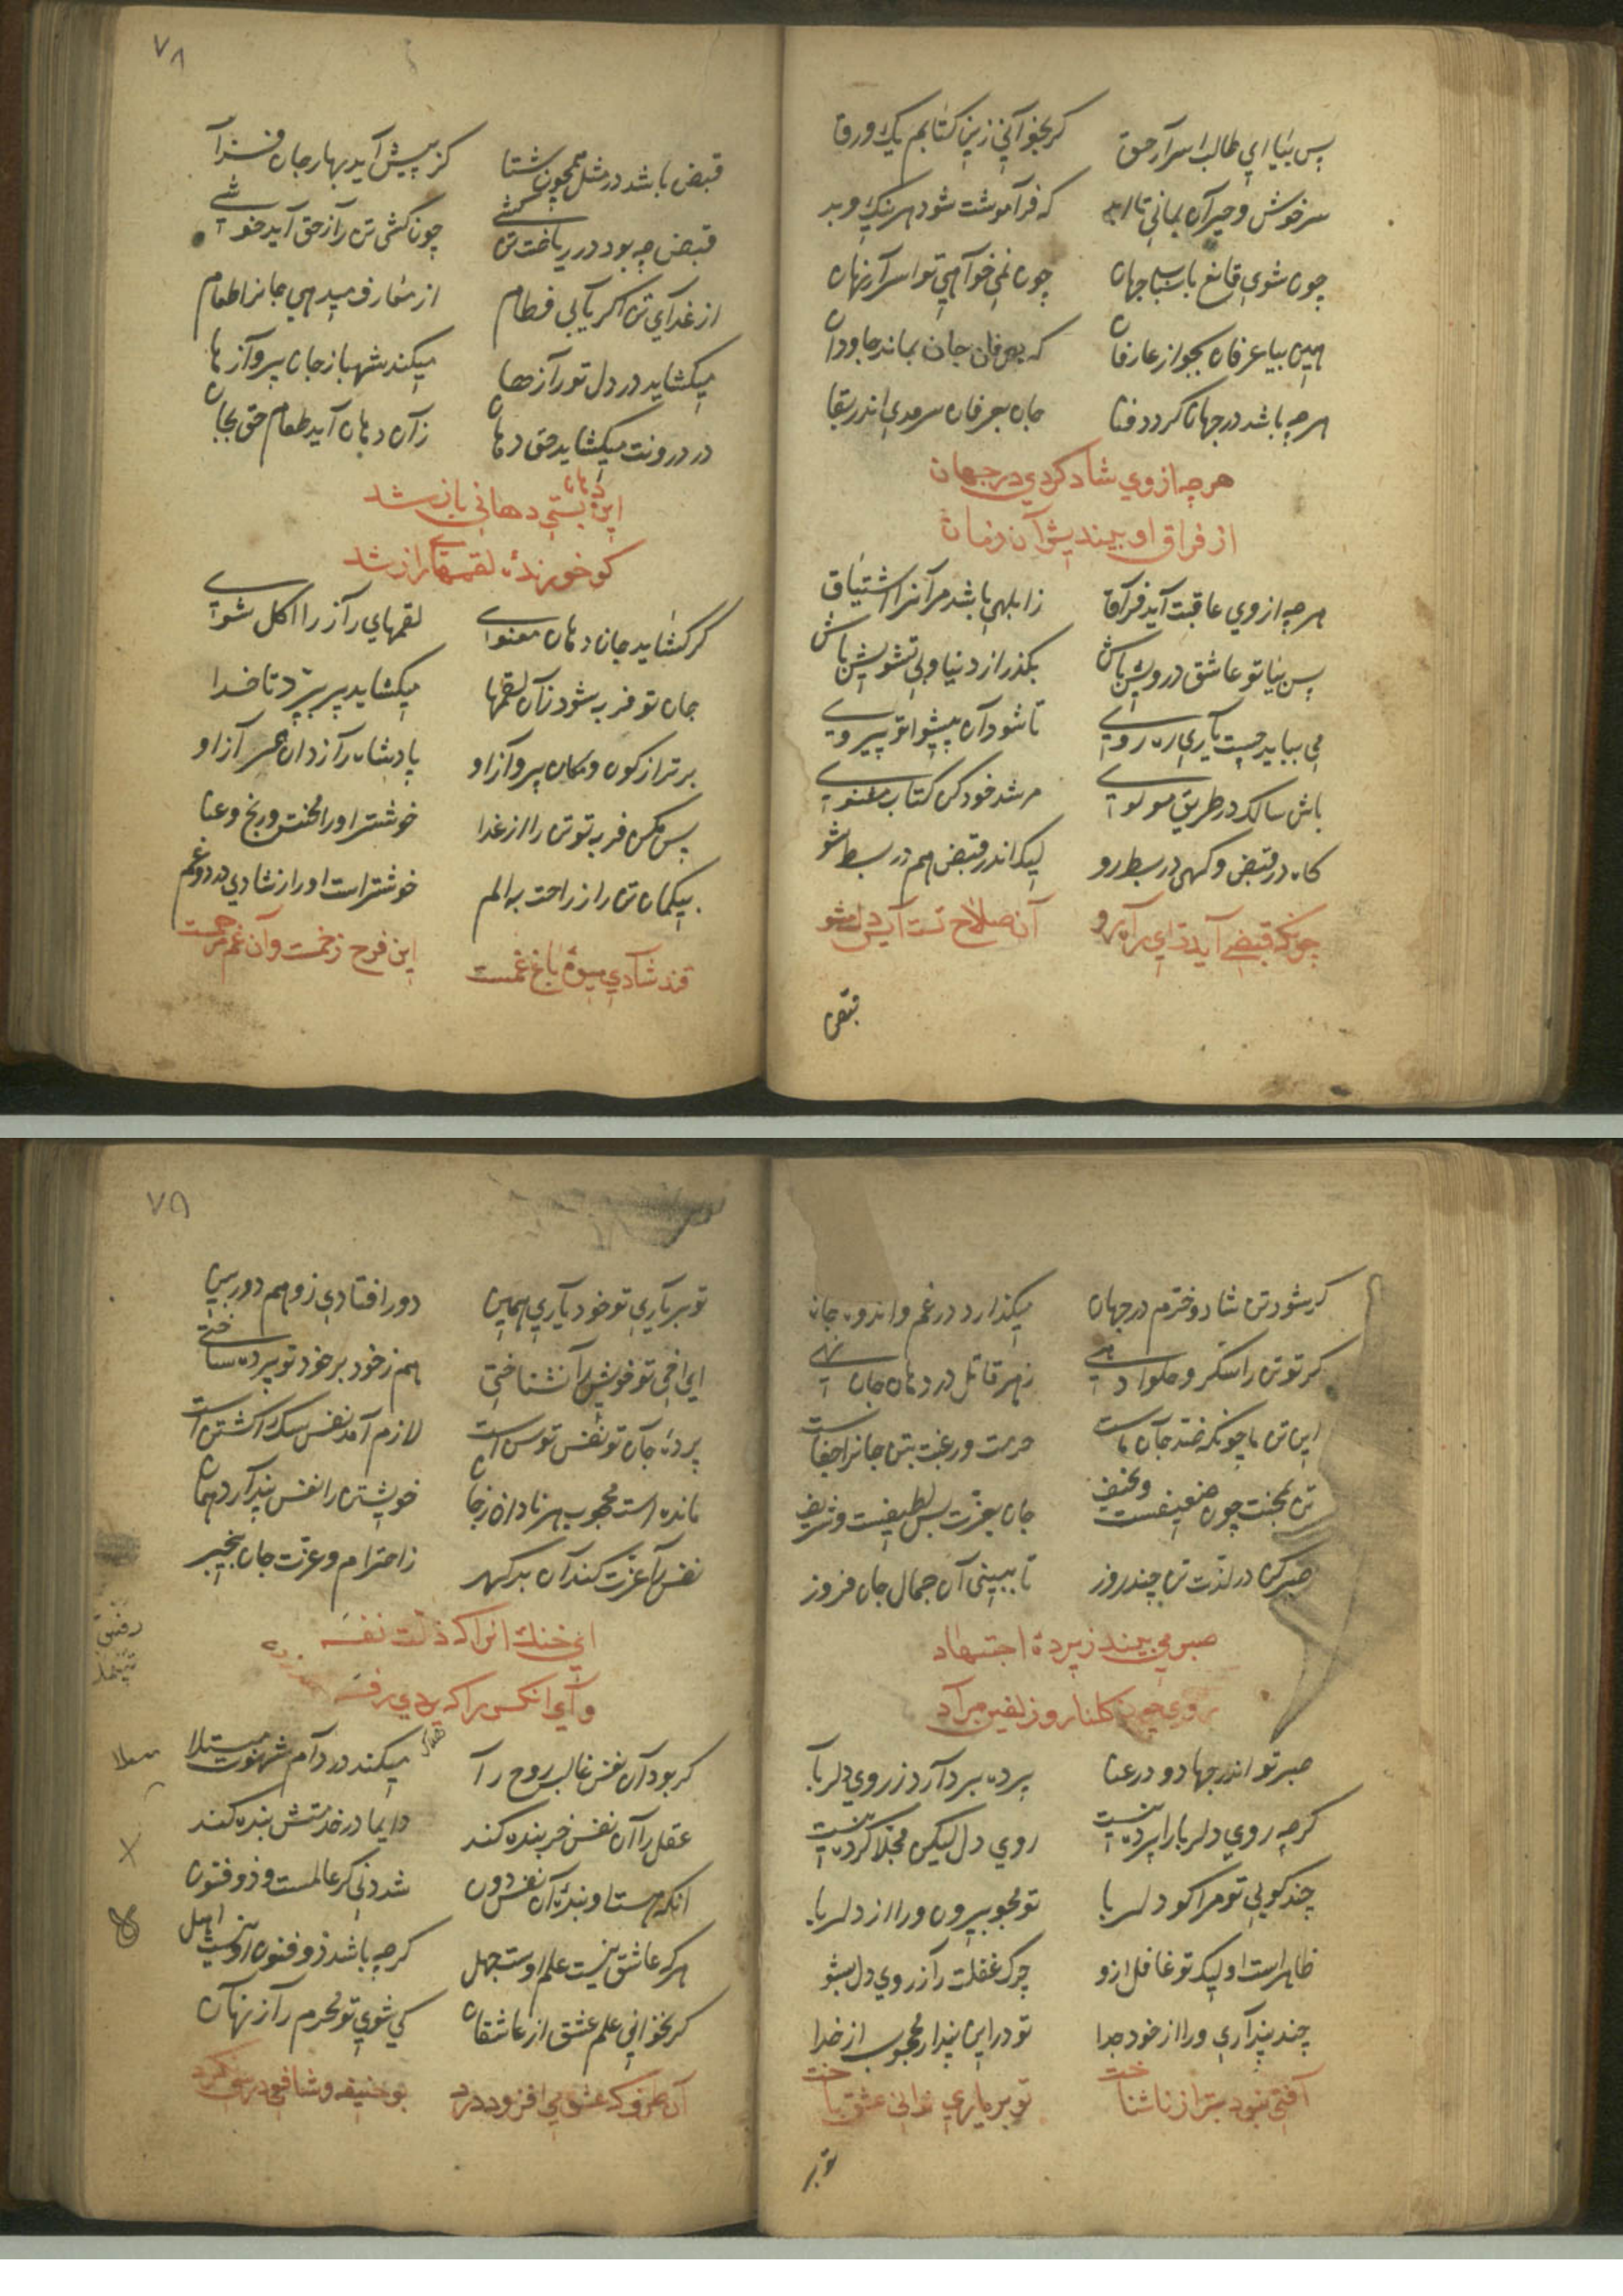 پس بیا ای طالب اسرار حق کر بخوانی زین کتابم یک ورق
سرخوش و حیران بمانی تا ابد که فراموشت شود هر نیک و بد
چون شوی قانع باسباب جهان چون نمی خواهی تو اسرار نهان
هین بیا عرفان بجو از عارفان که بعرفان جان بماند جاودان
هر چه باشد در جهان کردد فنا جان بعرفان سرمدی اندر بقا
هر چه از وي شاد کردي در جهان
از فراق او بیندیش آن زمان
هر چه از وی عاقبت آید فراق ز ابلهی باشد مر آنرا اشتیاق
پس بیا تو عاشق درویش باش بکذر از دنیا و بی تشویش باش
می بباید چست یاری ره روی تا شود آن پیشوا تو پیروی
باش سالک در طریق مولوی مرشد خود کن کتاب معنوی
کاه در قبض و کهی در بسط رو لیک اندر قبض هم در بسط شو
چونکه قبضی آیدت ای راه رو آن صلاح تست آیس دل مشو
قبض
٧٨
قبض باشد در مثل همچون شتا کز پیش آید بهار جان فزا
قبض چه بود در ریاضت تن کشی چون کشی تن را ز حق آید خوشی
از غدای تن اکر یابی فطام از معارف میدهی جانرا طعام
میکشاید در دل تو رازها میکند شهباز جان پروازها
در درونت میکشاید حق دهان زان دهان آید طعام حق بجان
این دهان بستي دهاني باز شد
کو خورندهٔ لقمهای راز شد
کر کشاید جان دهان معنوی لقمهای راز را اکل شوی
جان تو فربه شود زان لقمها میکشاید پر پرّد تا خدا
برتر از کون و مکان پرواز او پادشاه رازدان همراز او
پس مکن فربه تو تن را از غدا خوشتر او را محنت و رنج و عنا
بیکمان تن را ز راحت به الم خوشتر است او را ز شادی درد و غم
قند شادي میوهٔ باغ غمست این فرح زخمست وان غم مرهمست
کر شود تن شاد و خرم در جهان میکذارد در غم و اندوه جان
کر تو تن را شکر و حلوا دهی زهر قاتل در دهان جان نهی
این تن ما چونکه ضد جان ماست حرمت و رغبت بتن جانرا جفاست
تن بمحنت چون ضعیفست و نحیف جان بعزت بس لطیفست و شریف
صبر کن در لذت تن چند روز تا ببینی آن جمال جان فروز
صبر مي بیند ز پردهٔ اجتهاد
روي چون کلنار و زلفین مراد
صبر تو اندر جهاد و در عنا پرده بردارد ز روی دلربا
کرچه روی دلربا را پرده نیست روی دل لیکن مجلا کرده نیست
چند کویی تو مرا کو دلربا تو مجو بیرون ورا از دلربا
ظاهر است او لیک تو غافل ازو چرک غفلت را ز روی دل بشو
چند پنداری ورا از خود جدا تو در این پندار محجوب از خدا
آفتي نبود بتر از ناشناخت تو بر یاري نداني عشق باخت
تو بر
٧٩
تو بر یاری تو خود یاری همین دور افتادی ز وهم دوربین
ای اخی تو خویش را نشناختی هم ز خود بر خود تو پرده ساختی
پردهٔ جان تو نفس توست لازم آمد نفس سک را کشتن است
مانده است محجوب هر نادان ز جان خویشتن را نفس پندارد همان
نفس را عزت کند آن بدکهر ز احترام و عزت جان بیخبر
اي خنك انرا که ذلت نفسه
واي آنکس را که یردي رفسه
کر بود آن نفس غالب روح را میکند در دام شهوت مبتلا
عقل را آن نفس خر بنده کند دایما در خدمتش بنده کند
آنکه هست او بندهٔ آن نفس دون شد دنی کر عالمست و ذوفنون
هر که عاشق نیست علم اوست جهل کرچه باشد ذوفنون او نیست اهل
کر بخوانی علم عشق از عاشقان کی شوی تو محرم راز نهان
آن طرف که عشق مي افزود درد بو حنیفه و شافعي درسي نکرد